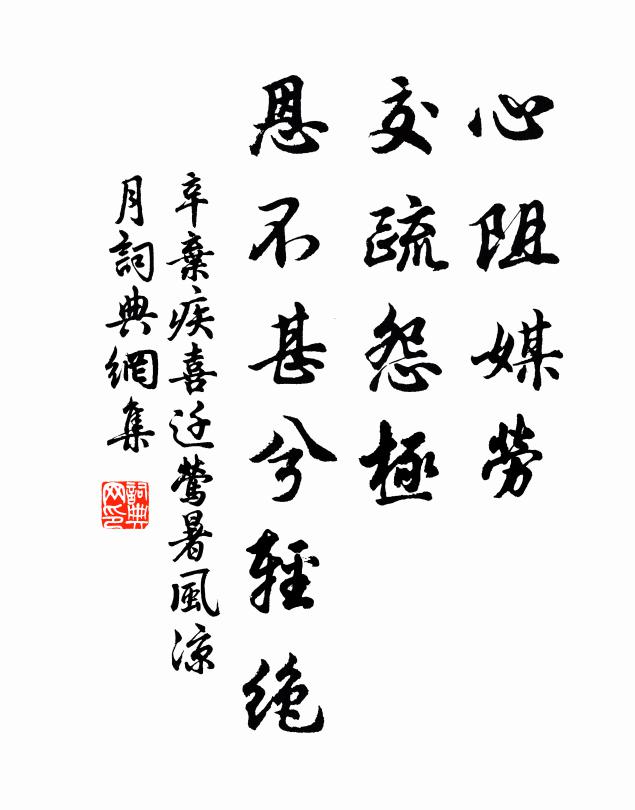 心阻媒勞
交疏怨極
恩不甚兮輕絕
辛棄疾喜迁鶯暑風涼
月詞典網集
詞典
网印